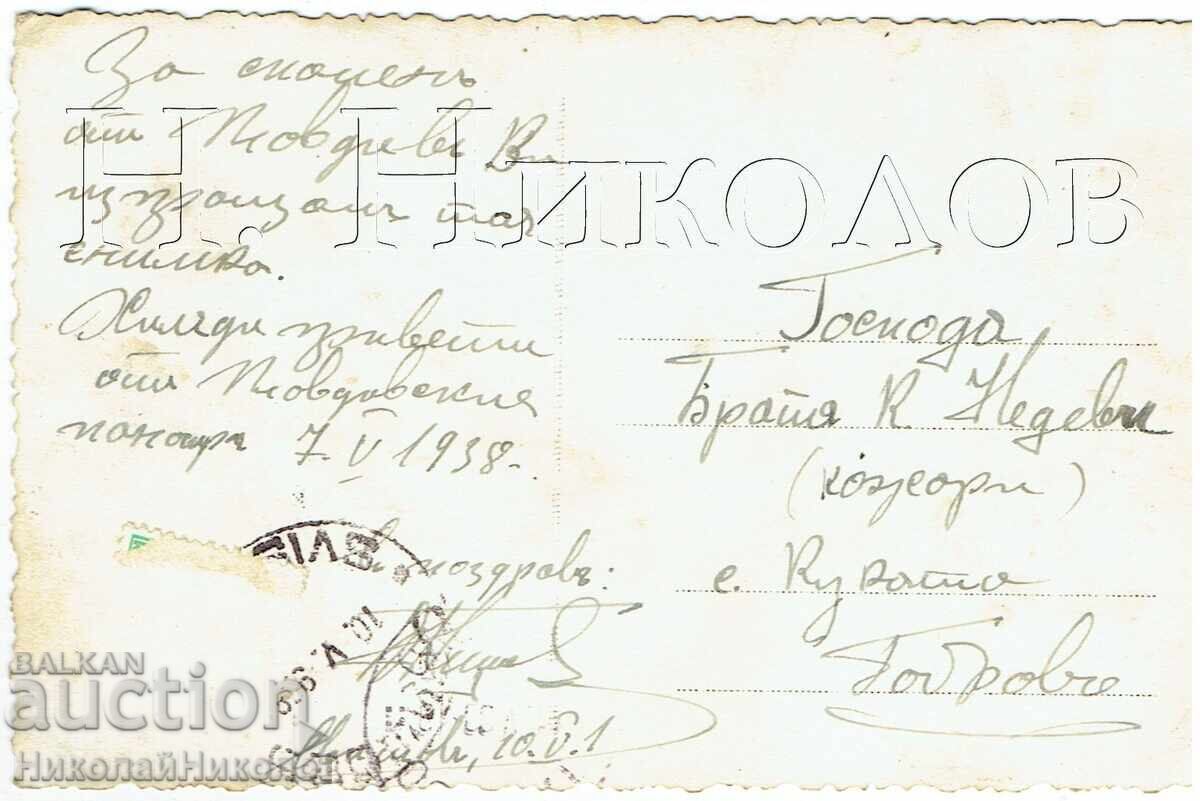 За споменъ
отъ Пловдивъ Ви
изпращамъ тая
снимка.
Хиляди привети
отъ Пловдивския
панаиръ 7.V 1938.
поздравъ:
10.V.1
Господа
Братя К. Недеви
(кожари)
с. Куката
Габрово
SVI
10.V.938
Н. Николов
BALKAN
auction
НиколайНиколов